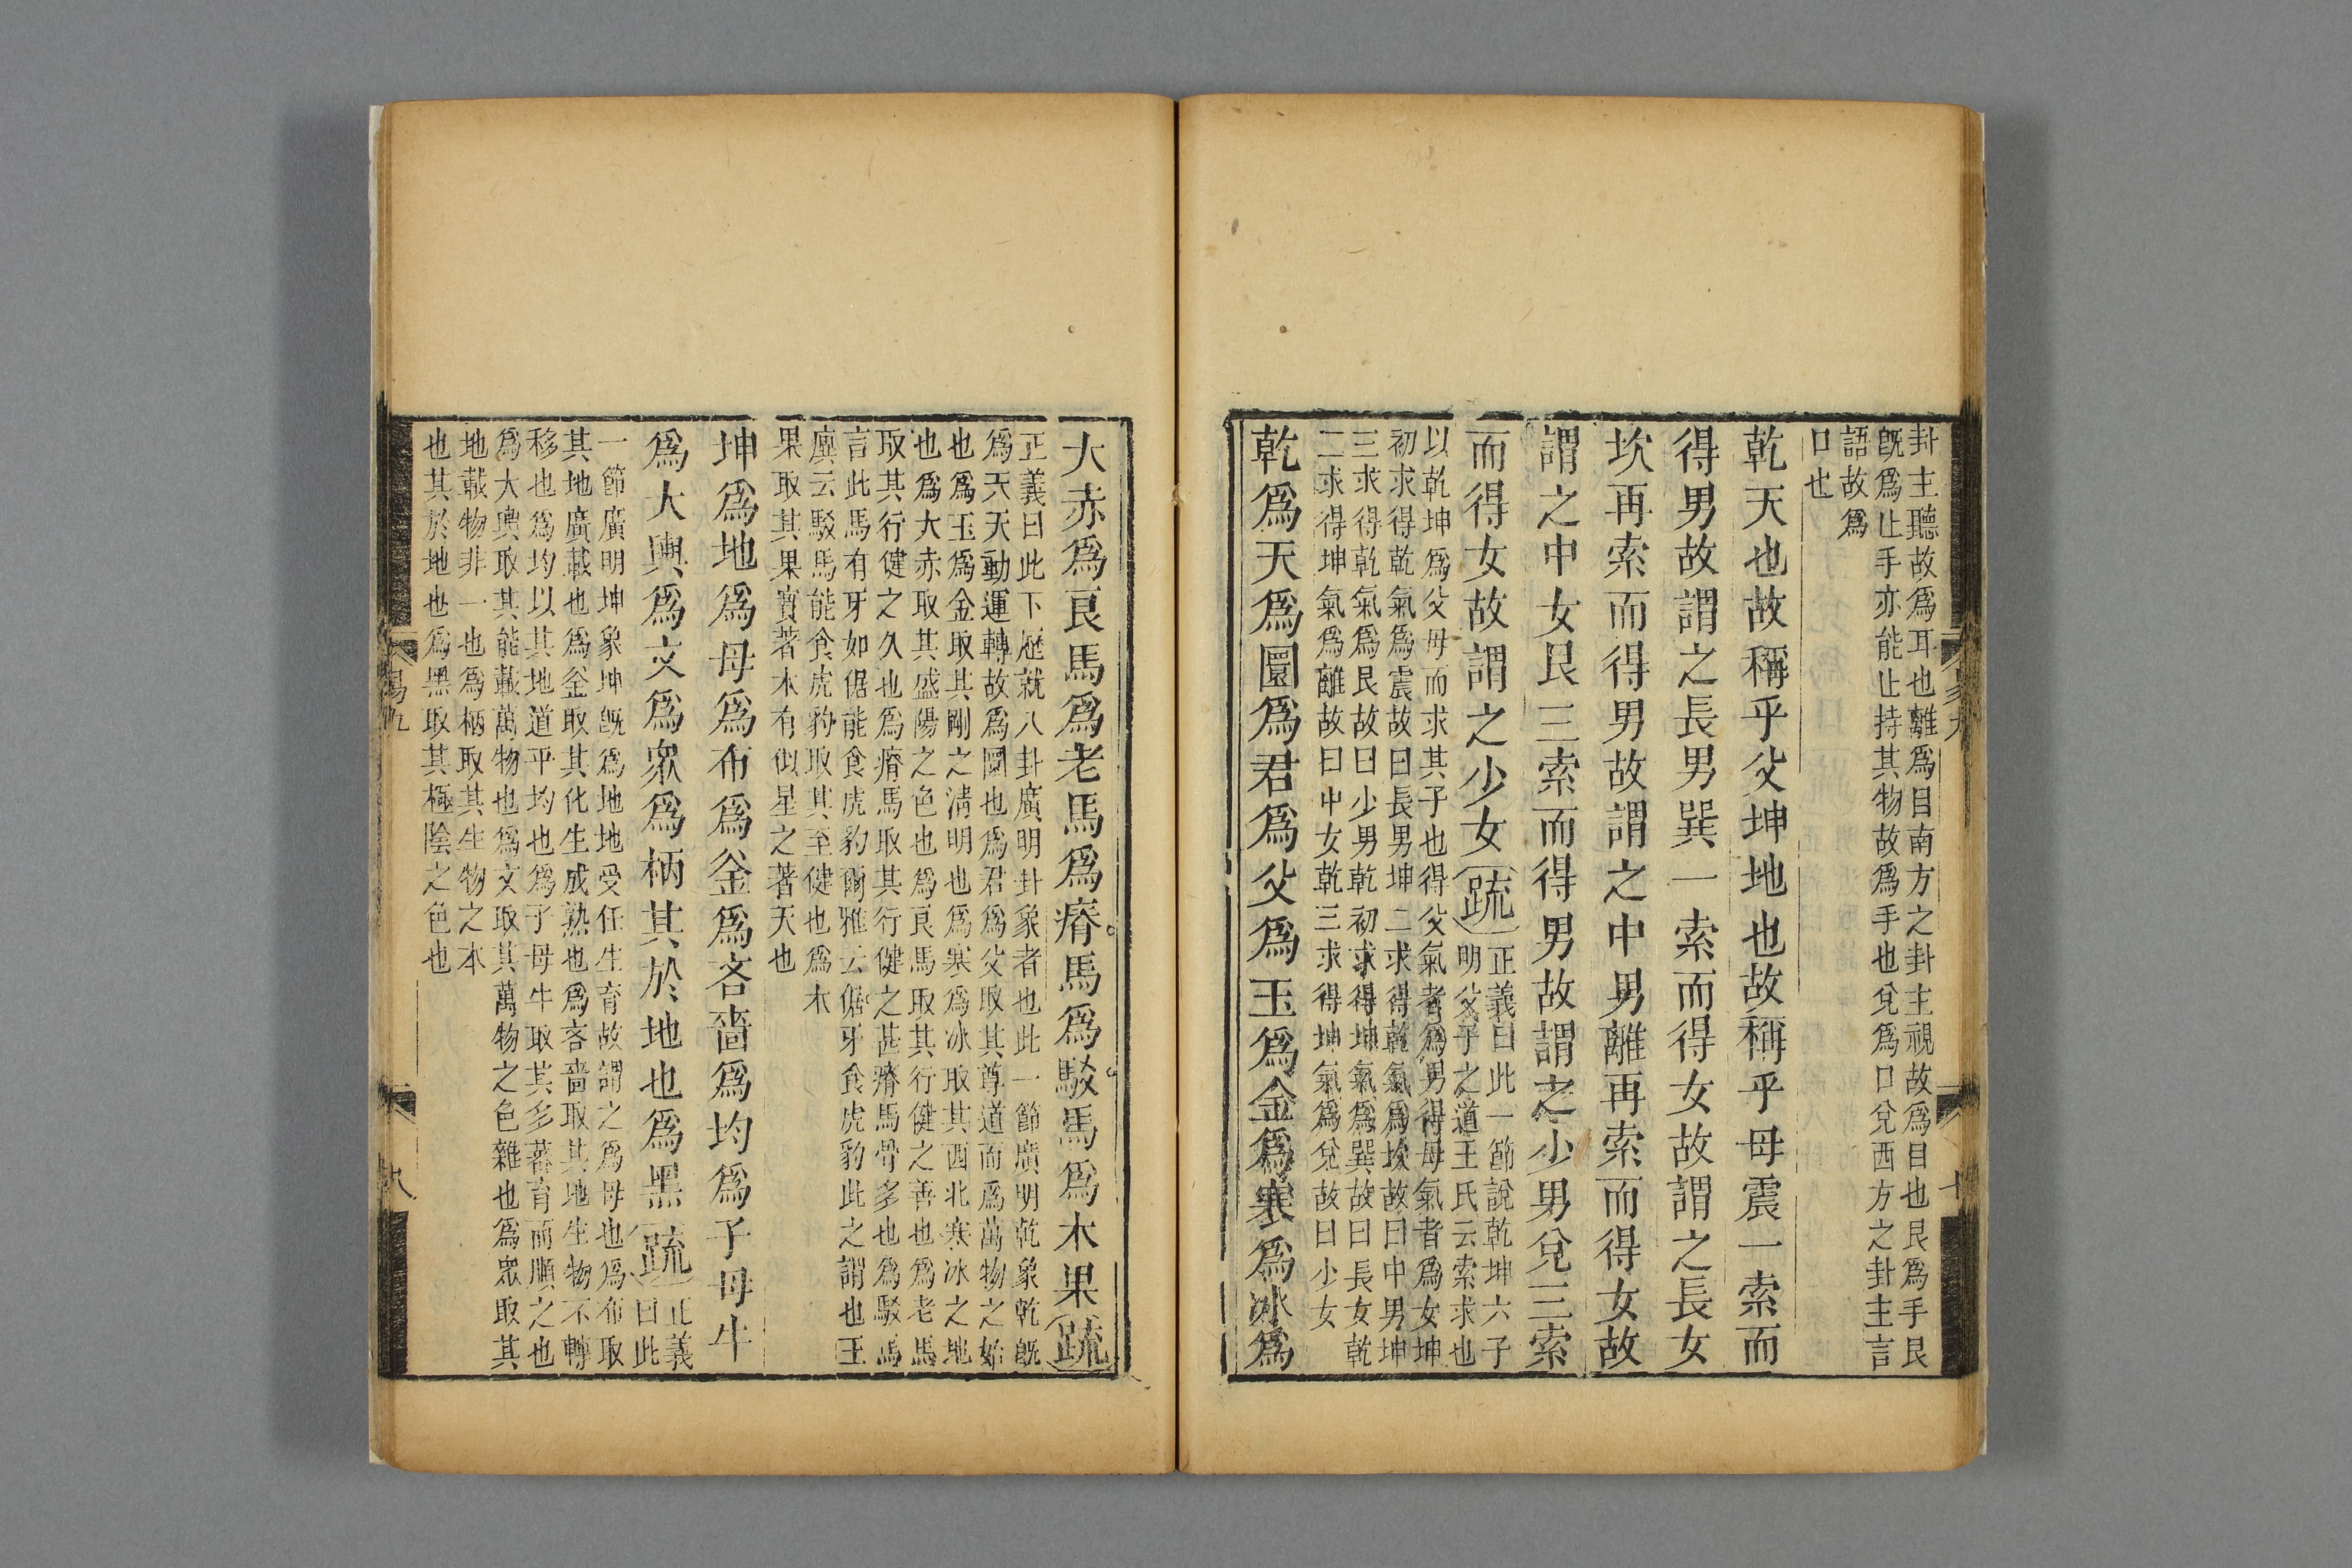 卦主聽故爲耳也離爲目南方之卦主視故爲目也艮爲手艮
旣爲止手亦能止持其物故爲手也兌爲口兌西方之卦主言
語故爲
口也
乾天也故稱乎父坤地也故稱乎母震一索而
得男故謂之長男巽一索而得女故謂之長女
坎再索而得男故謂之中男離再索而得女故
謂之中女艮三索而得男故謂之少男兌三索
而得女故謂之少女疏
正義曰此一節說乾坤六子
明父子之道王氏云索求也
以乾坤爲父母而求其子也得父氣者爲男得母氣者爲女坤
初求得乾氣爲震故曰長男坤二求得乾氣爲坎故曰中男坤
三求得乾氣爲艮故曰少男乾初求得坤氣爲巽故曰長女乾
二求得坤氣爲離故曰中女乾三求得坤氣爲兌故曰少女
乾爲天爲圜爲君爲父爲玉爲金爲寒爲冰爲
大赤爲良馬爲老馬爲瘠馬爲駁馬爲木果疏
正義曰此下歷就八卦廣明卦象者也此一節廣明乾象乾旣
爲天天動運轉故爲圜也爲君爲父取其尊道而爲萬物之始
也爲玉爲金取其剛之淸明也爲寒爲冰取其西北寒冰之地
也爲大赤取其盛陽之色也爲良馬取其行健之善也爲老馬
取其行健之久也爲瘠馬取其行健之甚瘠馬骨多也爲駁馬
言此馬有牙如倨能食虎豹爾雅云倨牙食虎豹此之謂也王
廙云駁馬能食虎豹取其至健也爲木
果取其果實著木有似星之著天也
坤爲地爲母爲布爲釜爲吝嗇爲均爲子母牛
爲大輿爲文爲衆爲柄其於地也爲黑疏
正義
曰此
一節廣明坤象坤旣爲地地受任生育故謂之爲母也爲布取
其地廣載也爲釜取其化生成熟也爲吝嗇取其地生物不轉
移也爲均以其地道平均也爲子母牛取其多蕃育而順之也
爲大輿取其能載萬物也爲文取其萬物之色雜也爲衆取其
地載物非一也爲柄取其生物之本
也其於地也爲黑取其極陰之色也
易九